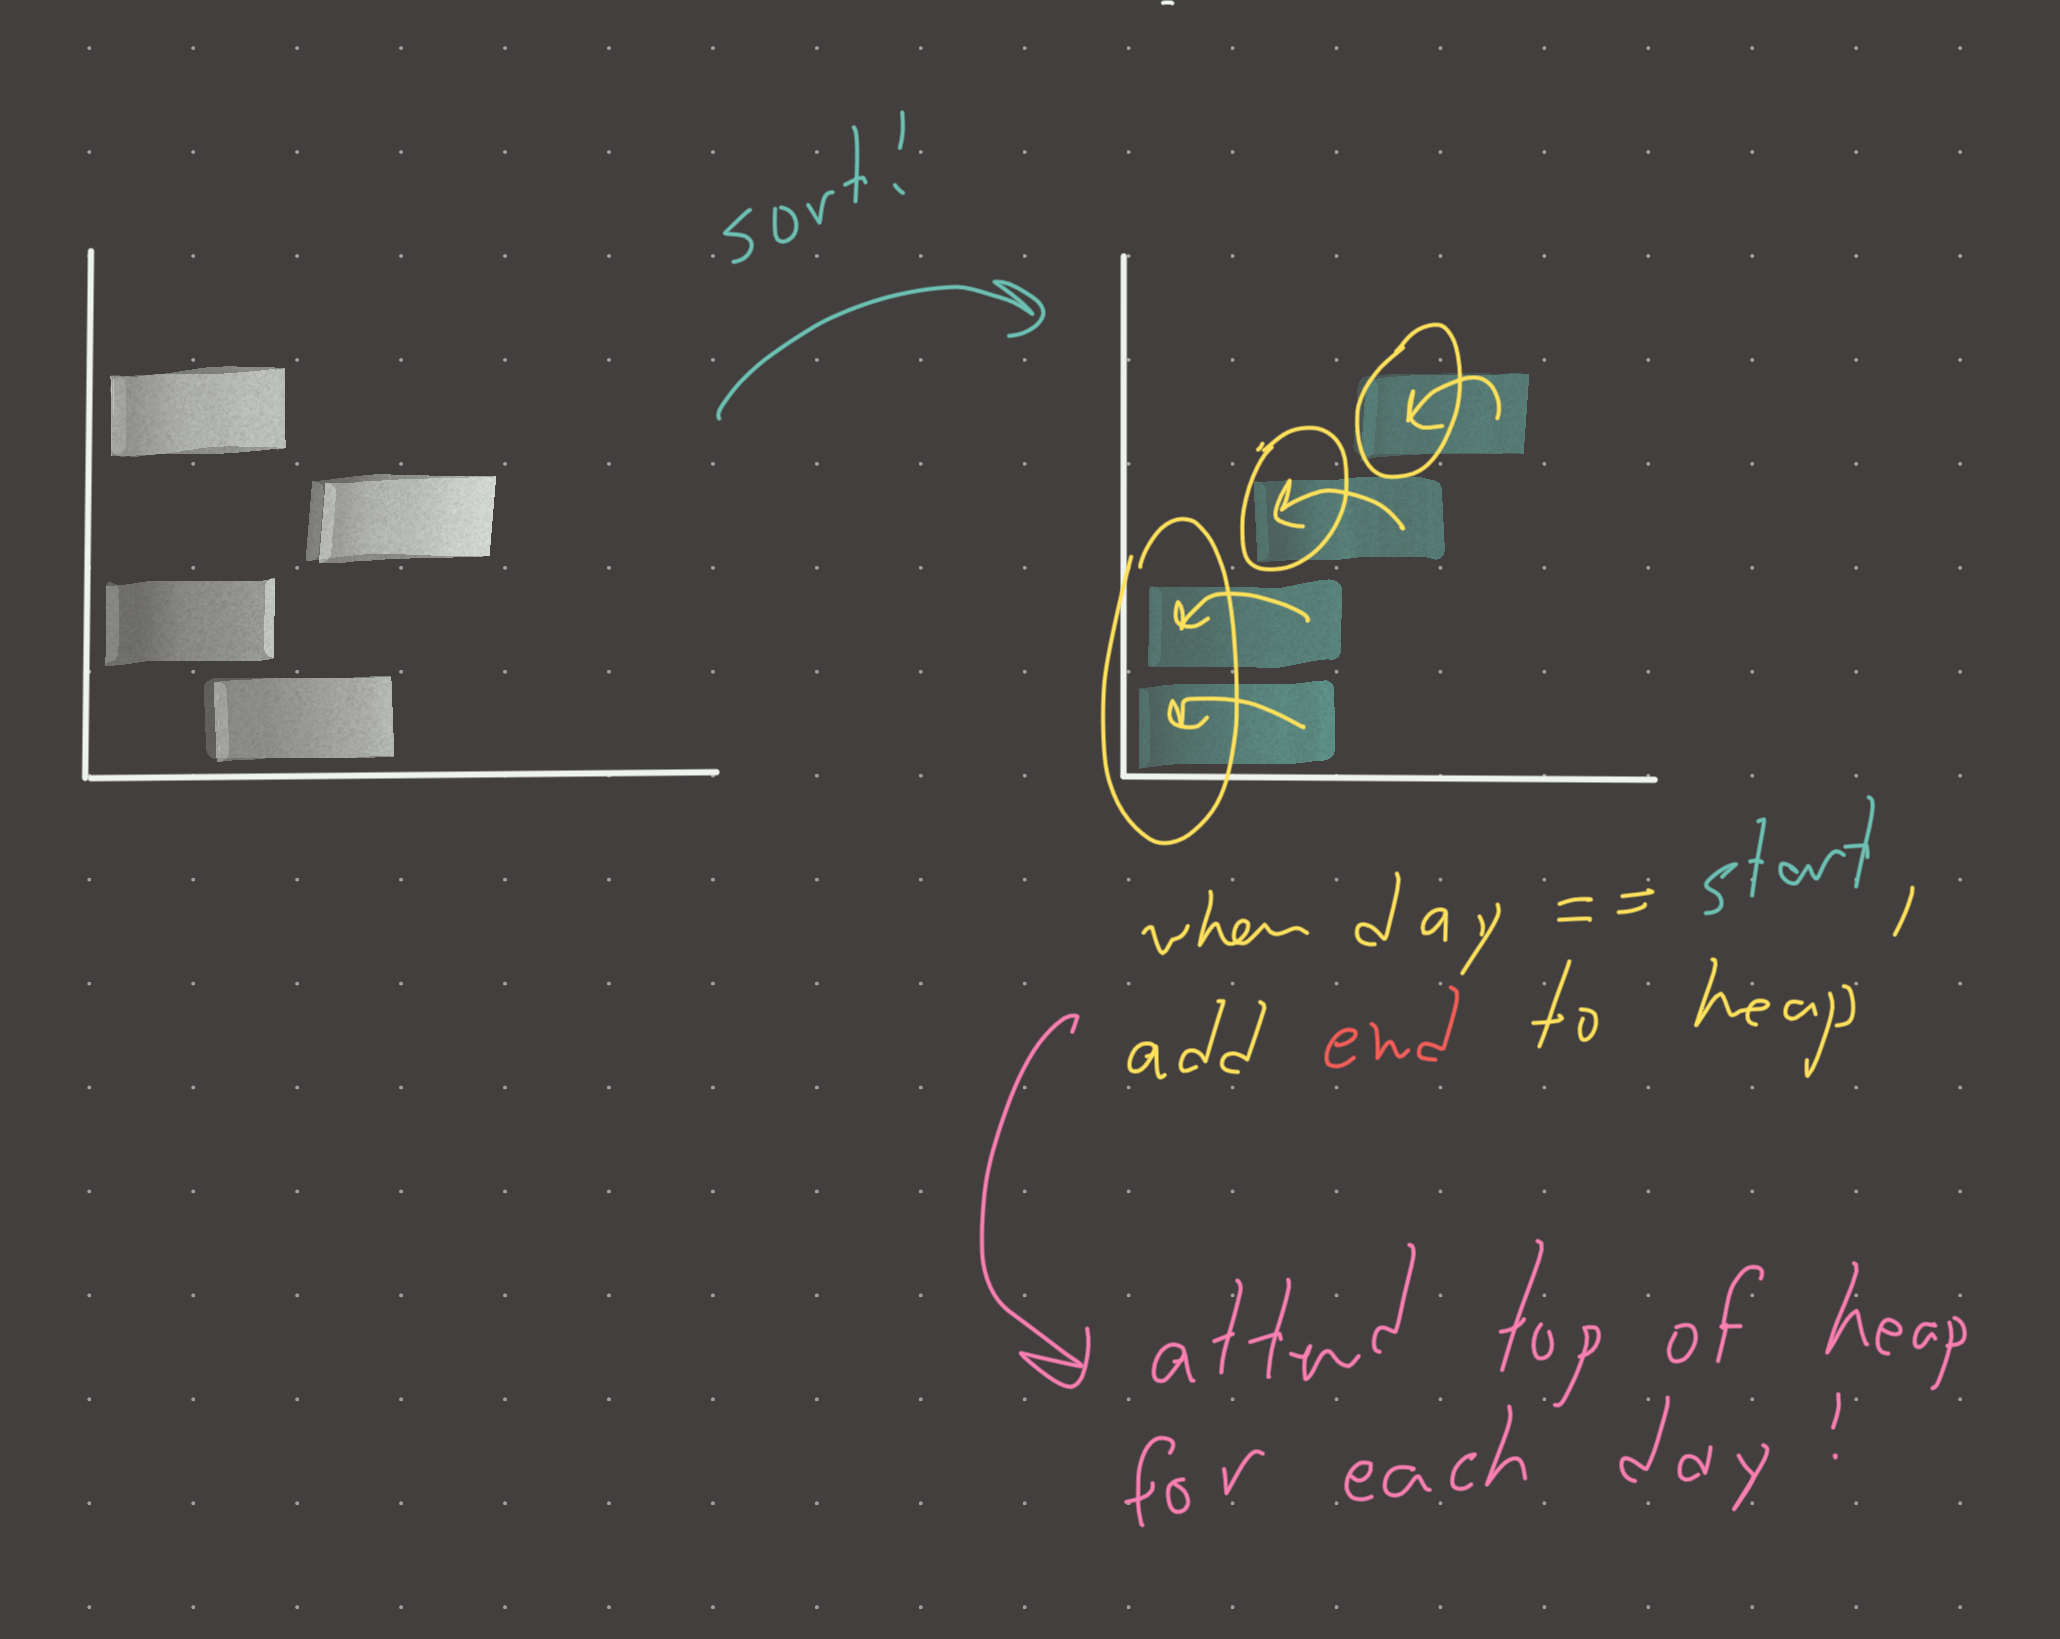 sort!
when day == start,
add end to heap
attend top of heap
for each day!